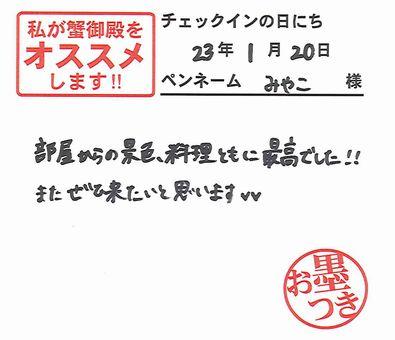 私が蟹御殿を
オススメ
します!!
チェックインの日にち
23年1月20日
ペンネーム みやこ 様
部屋からの景色、料理ともに最高でした!!
またぜひ来たいと思います♡♡
お墨つき